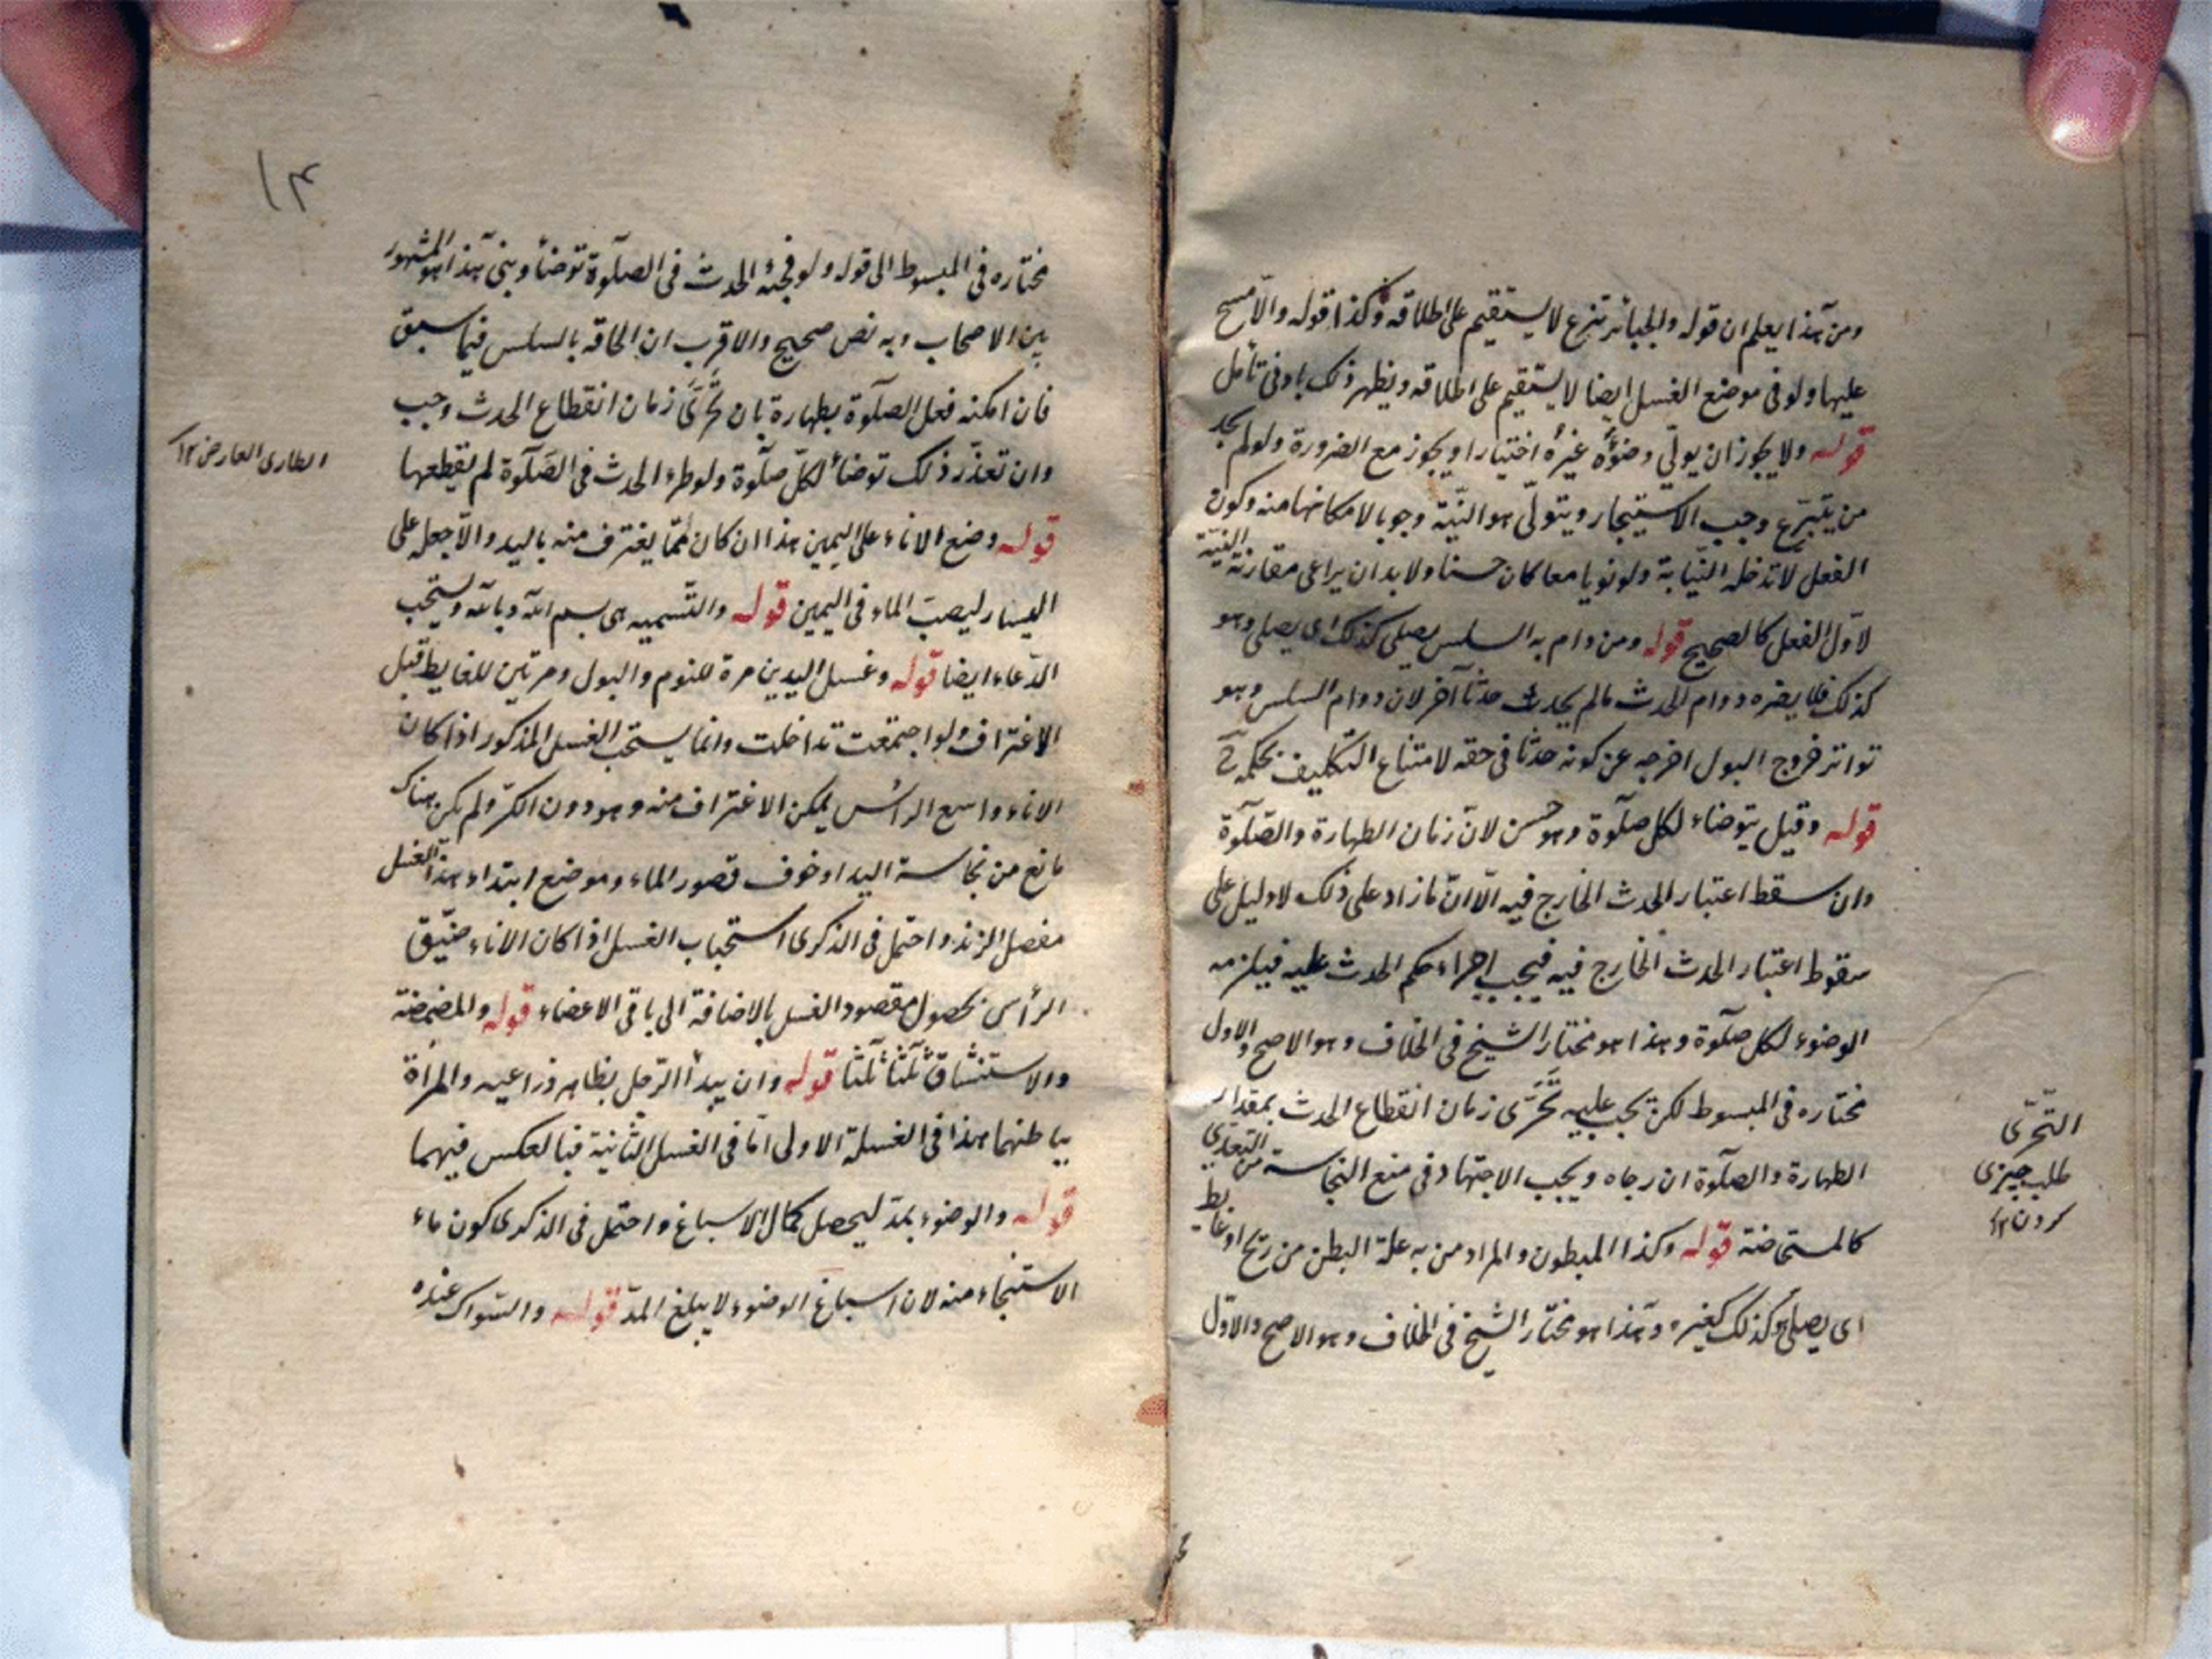 ومن هذا يعلم ان قوله والجبائر تنزع لا يستقيم على اطلاقه وكذا قوله والا مسح
عليها ولو في موضع الغسل ايضا لا يستقيم على اطلاقه ويظهر ذلك بادنى تأمل
قوله ولا يجوز ان يولّي وضوءه غيره اختيارا ويجوز مع الضرورة ولو لم يجد
من يتبرّع وجب الاستيجار ويتولّى هو النيّة وجوبا لامكانها منه وكون
الفعل لا تدخله النّيابة ولو نويا معا كان حسنا ولا بد ان يراعى مقارنة النيّة
لاوّل الفعل كالصحيح قوله ومن دام به السلس يصلى كذلك اى يصلى وهو
كذلك فلا يضره دوام الحدث مالم يحدث حدثا آخر لان دوام السلس وهو
تواتر خروج البول اخرجه عن كونه حدثا في حقه لامتناع التكليف بحكمه ح
قوله وقيل يتوضاء لكل صلوة وهو حسن لانّ زمان الطهارة والصّلوة
وان سقط اعتبار الحدث الخارج فيه الّا انّ مازاد على ذلك لا دليل على
سقوط اعتبار الحدث الخارج فيه فيجب اجراء حكم الحدث عليه فيلزمه
الوضوء لكل صلوة وهذا هو مختار الشيخ في الخلاف وهو الاصح والاول
مختاره في المبسوط لكن يجب عليه تَحَرّى زمان انقطاع الحدث بمقدار
الطهارة والصلوة ان رجاه ويجب الاجتهاد في منع النجاسة من التعدّي
كالمستحاضة قوله وكذا المبطون والمراد من به علة البطن من ريح او غايط
اى يصلى وكذلك كغيره وهذا هو مختار الشيخ في الخلاف وهو الاصح والاوّل
التّحرّى
طلب چیزى
كردن ١٢
١٤
مختاره في المبسوط الى قوله ولو فجئه الحدث في الصلوة توضأ وبنى هذا هو المشهور
بين الاصحاب وبه نص صحيح والاقرب ان الحاقه بالسلس فيما سبق
فان امكنه فعل الصلوة بطهارة بان تَحَرّى زمان انقطاع الحدث وجب
وان تعذّر ذلك توضأ لكلّ صلوة ولو طرء الحدث في الصّلوة لم يقطعها
الطارى العارض ١٢
قوله وضع الاناء على اليمين هذا ان كان ممّا يغترف منه باليد والّا جعله على
اليسار ليصبّ الماء في اليمين قوله والتّسميه هى بسم الله وبالله ويستحب
الدّعاء ايضا قوله وغسل اليدين مرة للنوم والبول ومرتين للغايط قبل
الاغتراف ولو اجتمعت تداخلت وانما يستحب الغسل المذكور اذا كان
الاناء واسع الرأس يمكن الاغتراف منه وهو دون الكرّ ولم يكن هناك
مانع من نجاسة اليد او خوف قصور الماء وموضع ابتداء هذا الغسل
مفصل الزند واحتمل في الذكرى استحباب الغسل اذا كان الاناء ضيّق
الرأس بحصول مقصود الغسل بالاضافة الى باقى الاعضاء قوله والمضمضة
والاستنشاق ثلثا ثلثا قوله وان يبدأ الرّجل بظاهر ذراعيه والمرأة
بباطنهما هذا في الغسلة الاولى امّا في الغسل الثانية فبالعكس فيهما
قوله والوضوء بمدّ ليحصل كمال الاسباغ واحتمل في الذكرى كون ماء
الاستنجاء منه لان اسباغ الوضوء لا يبلغ المدّ قوله والسّواك عنده